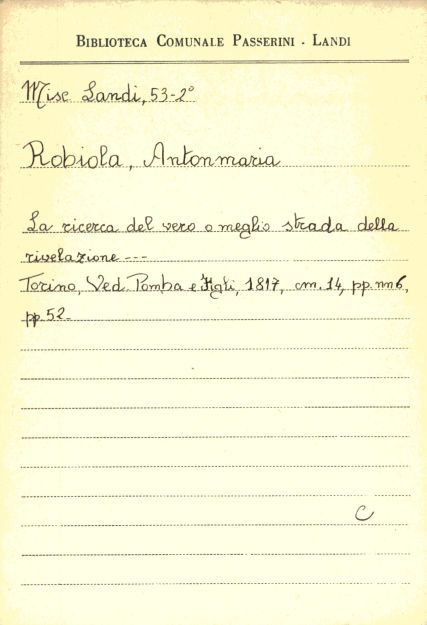 BIBLIOTECA COMUNALE PASSERINI - LANDI
Misc Landi, 53-2°
Robiola, Antonmaria
La ricerca del vero o meglio strada della
rivelazione ---
Torino, Ved. Pomba e Figli, 1817, cm. 14, pp. nn 6,
pp. 52.
C